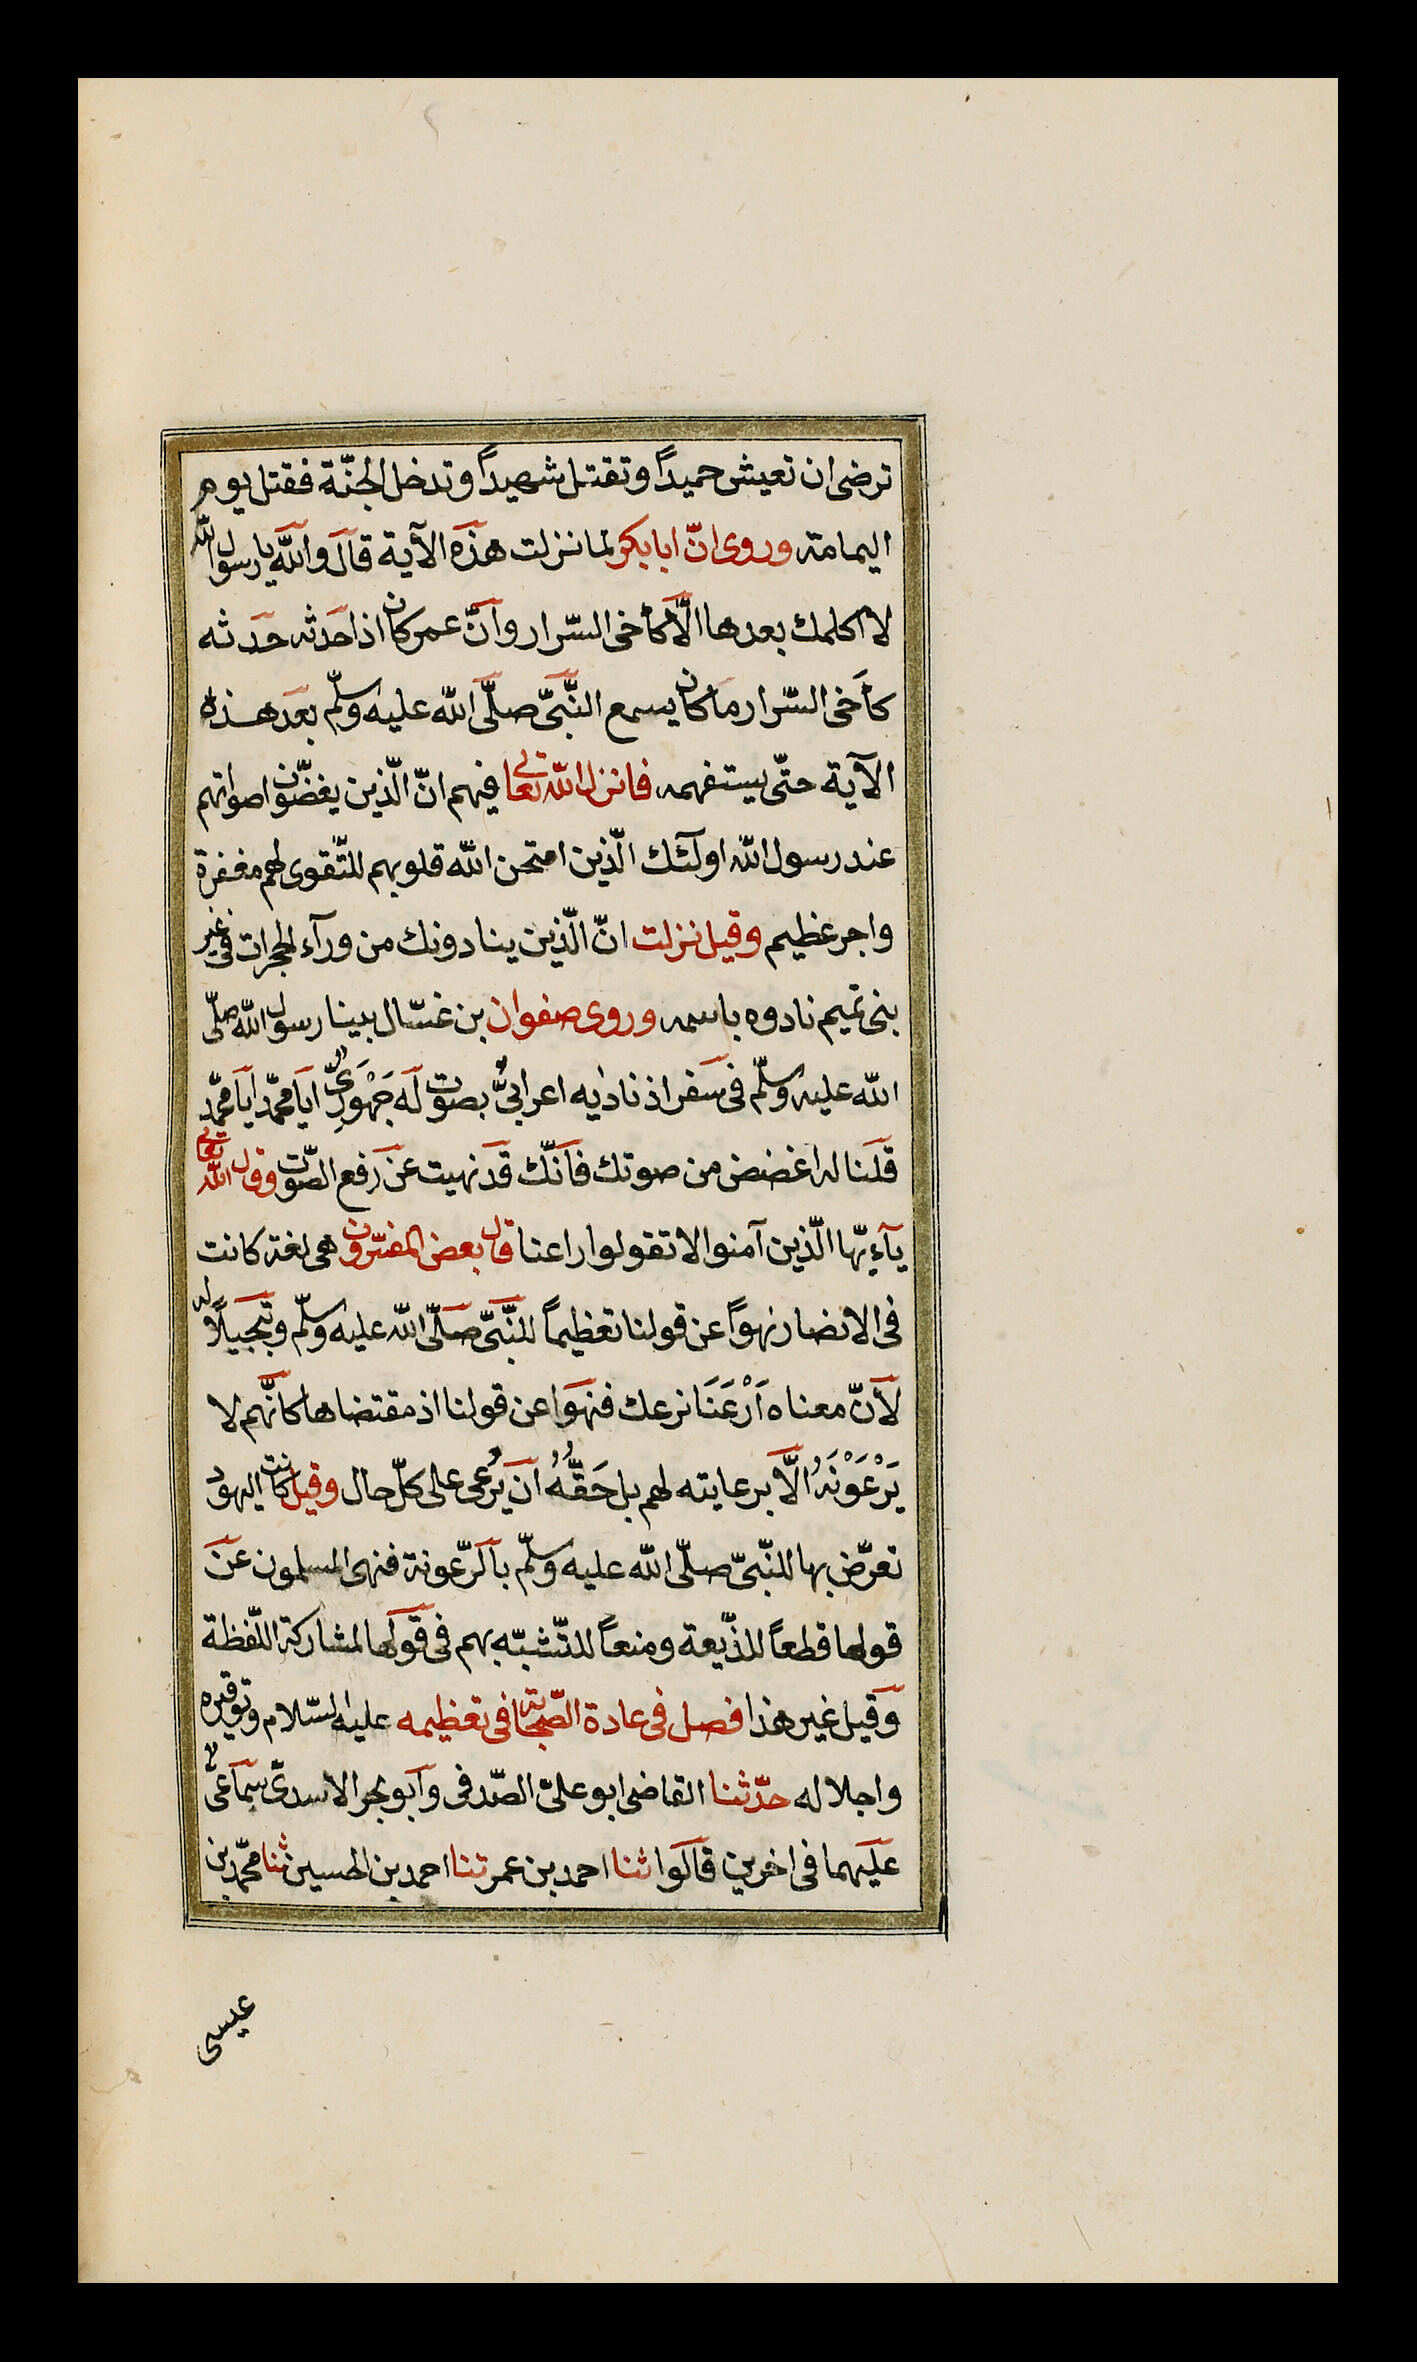 ترضى ان تعيش حميداً وتقتل شهيداً وتدخل الجنّة فقتل يوم
اليمامة وروى انّ ابا بكر لما نزلت هذه الآية قال والله يا رسول الله
لا اكلمك بعدها الّا كأخى السّرار وانّ عمر كان اذا حدثه حدثه
كأخى السّرار ما كان يسمع النّبىّ صلّى الله عليه وسلّم بعد هذه
الآية حتّى يستفهمه فانزل الله تعالى فيهم انّ الّذين يغضّون اصواتهم
عند رسول الله اولئك الّذين امتحن الله قلوبهم للتّقوى لهم مغفرة
واجر عظيم وقيل نزلت انّ الّذين ينادونك من ورآء الحجرات فى غير
بنى تميم نادوه باسمه وروى صفوان بن غسّال بينا رسول الله صلّى
الله عليه وسلّم فى سفر اذ ناديه اعرابىٌّ بصوت له جَهْوَرِىٍّ ايا محمّد ايا محمّد
قلنا له اغضض من صوتك فانّك قد نهيت عن رفع الصّوت وقال الله تعالى
يآءيّها الّذين آمنوا لا تقولوا راعنا قال بعض المفسّرون هى لغة كانت
فى الانضار نهوًا عن قولنا تعظيماً للنّبىّ صلّى الله عليه وسلّم وتبجيلًا له
لأنّ معناه اَرْعَنَا نرعك فنهوا عن قولنا اذ مقتضاها كانّهم لا
يَرْعَوْنَهُ الّا برعايته لهم بل حَقُّهُ ان يُرعى على كلّ حال وقيل كانت اليهود
تعرّض بها للنّبىّ صلّى الله عليه وسلّم بالرّعونة فنهى المسلمون عن
قولها قطعاً للذّيعة ومنعاً للتّشبّه بهم فى قولها لمشاركة اللّفظة
وقيل غير هذا فصل فى عادة الصّحابة فى تعظيمه عليه السّلام وتوقيره
واجلاله حدّثنا القاضى ابو علىّ الصّدفى وابو بحر الاسدىّ سماعى
عليهما فى اخرين قالوا ثنا احمد بن عمر ثنا احمد بن الحسين ثنا محمّد بن
عيسى